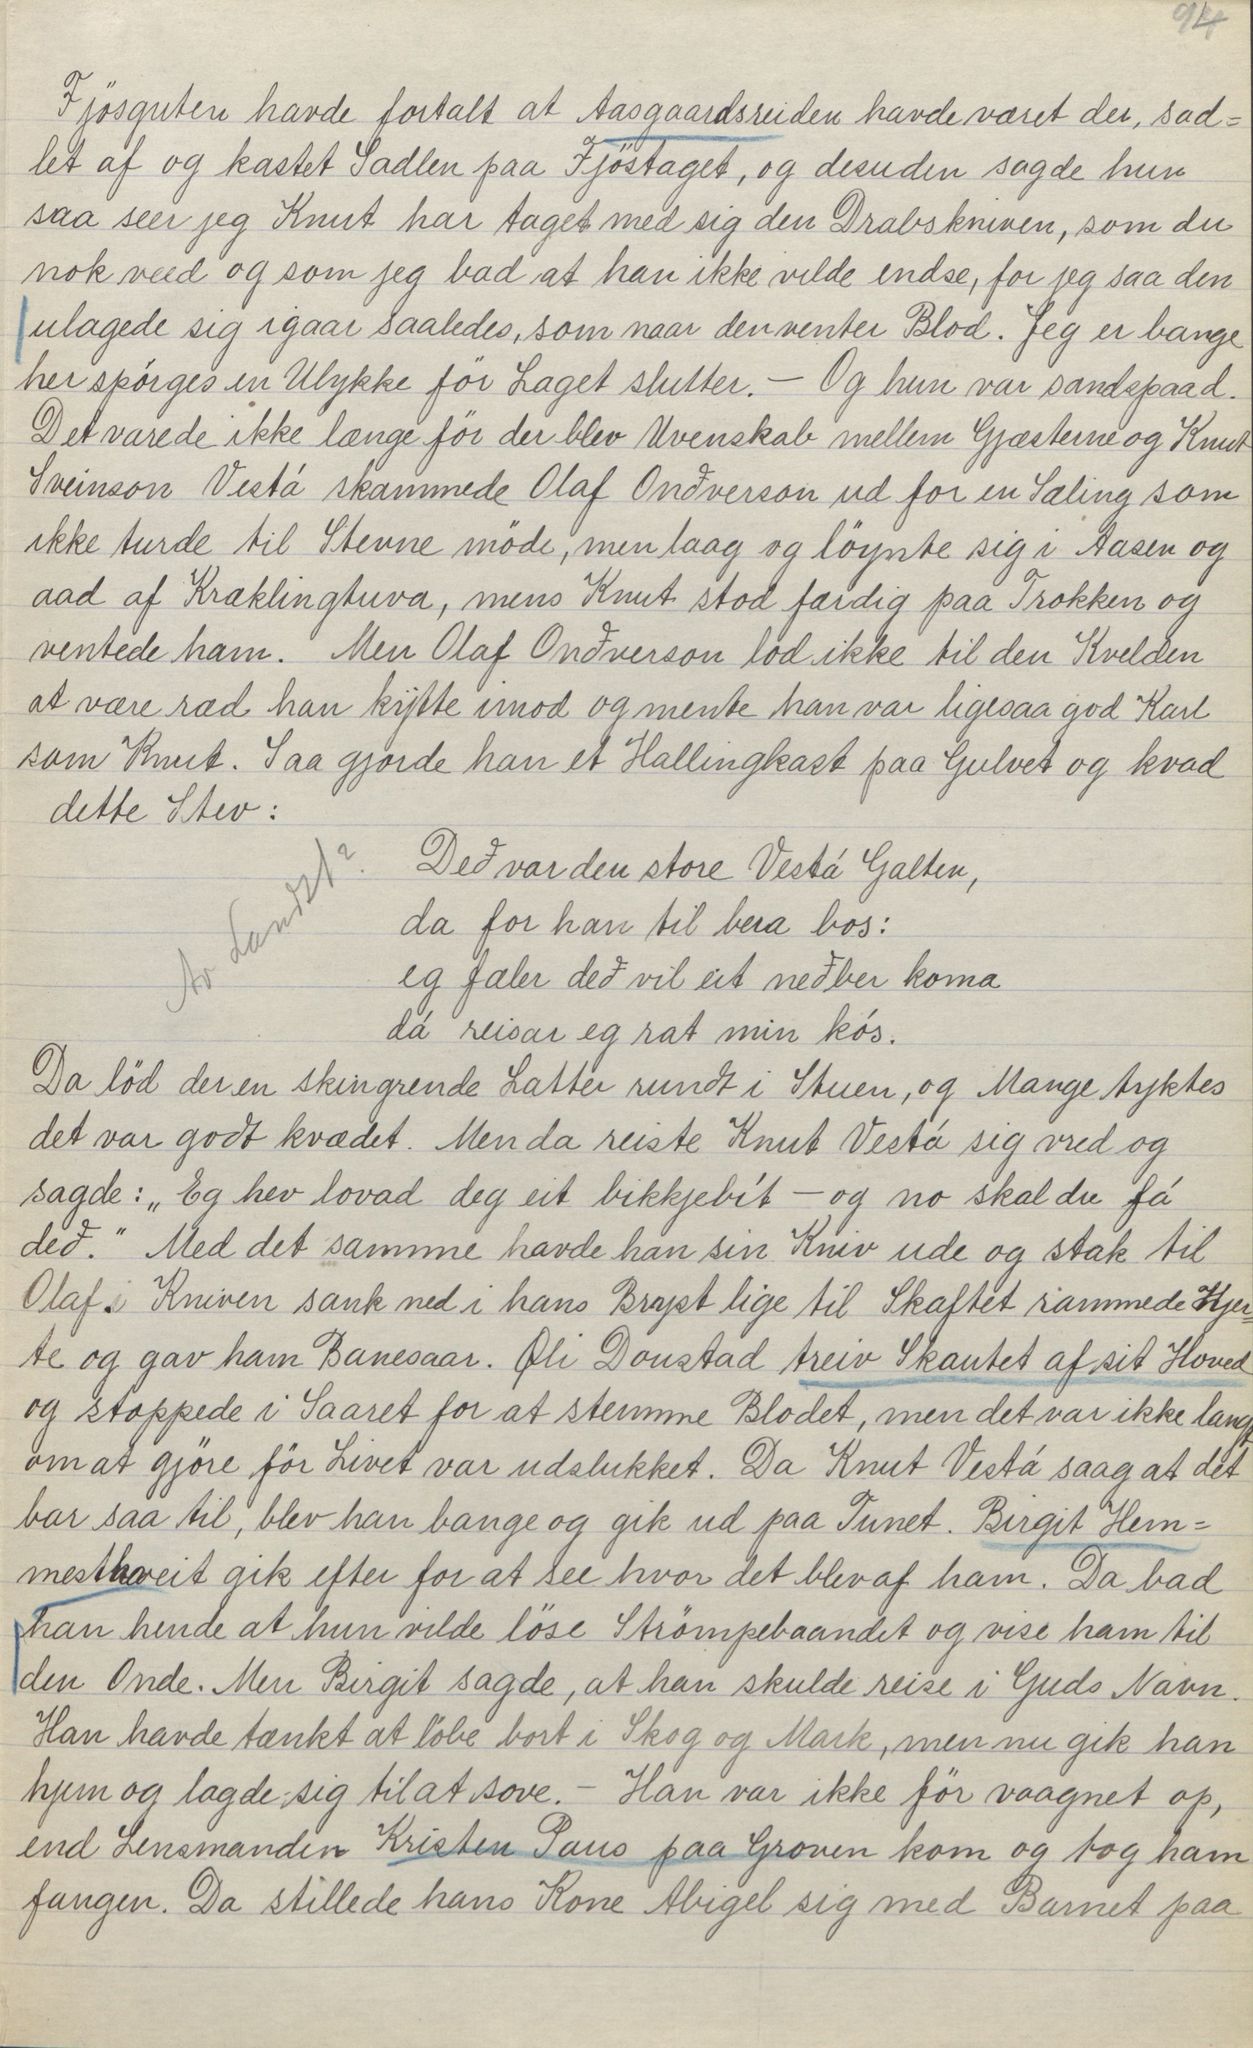 94
Fjösguten havde fortalt at Aasgaardsreiden havde været der, sad=
let af og kastet Sadlen paa Fjöstaget, og desuden sagde hun
saa seer jeg Knut har taget med sig den Drabskniven, som du
nok veed og som jeg bad at han ikke vilde endse, for jeg saa den
ulagede sig igaar saaledes, som naar den venter Blod. Jeg er bange
her spörges en Ulykke för Laget slutter. — Og hun var sandspaad.
Det varede ikke længe för der blev Uvenskab mellem Gjæsterne og Knut
Sveinson Vestá skammede Olaf Onðverson ud for en Sæling som
ikke turde til Stevne möde, men laag og löynte sig i Aasen og
aad af Kræklingtuva, mens Knut stod færdig paa Trokken og
ventede ham. Men Olaf Onðverson lod ikke til den Kvelden
at være ræd han kytte imod og mente han var ligesaa god Karl
som Knut. Saa gjorde han et Hallingkast paa Gulvet og kvad
dette Stev:
Av Landst?
Deð var den store Vestá Galten,
da for han til bera bos:
eg fæler deð vil eit neðber koma
dá reisar eg rat min kós.
Da löd der en skingrende Latter rundt i Stuen, og Mange tyktes
det var godt kvædet. Men da reiste Knut Vestá sig vred og
sagde: „Eg hev lovad deg eit bikkjebít — og no skal du fá
deð." Med det samme havde han sin Kniv ude og stak til
Olaf; Kniven sank ned i hans Bryst lige til Skaftet rammede Hjer=
te og gav ham Banesaar. Øli Donstad treiv Skautet af sit Hoved
og stoppede i Saaret for at stemme Blodet, men det var ikke langt
om at gjöre för Livet var udslukket. Da Knut Vestá saag at det
bar saa til, blev han bange og gik ud paa Tunet. Birgit Hem=
mesthveit gik efter for at see hvor det blev af ham. Da bad
han hende at hun vilde löse Strömpebaandet og vise ham til
den Onde. Men Birgit sagde, at han skulde reise i Guds Navn.
Han havde tænkt at löbe bort i Skog og Mark, men nu gik han
hjem og lagde sig til at sove. — Han var ikke för vaagnet op,
end Lensmanden Kristen Paus paa Groven kom og tog ham
fangen. Da stillede hans Kone Abigel sig med Barnet paa